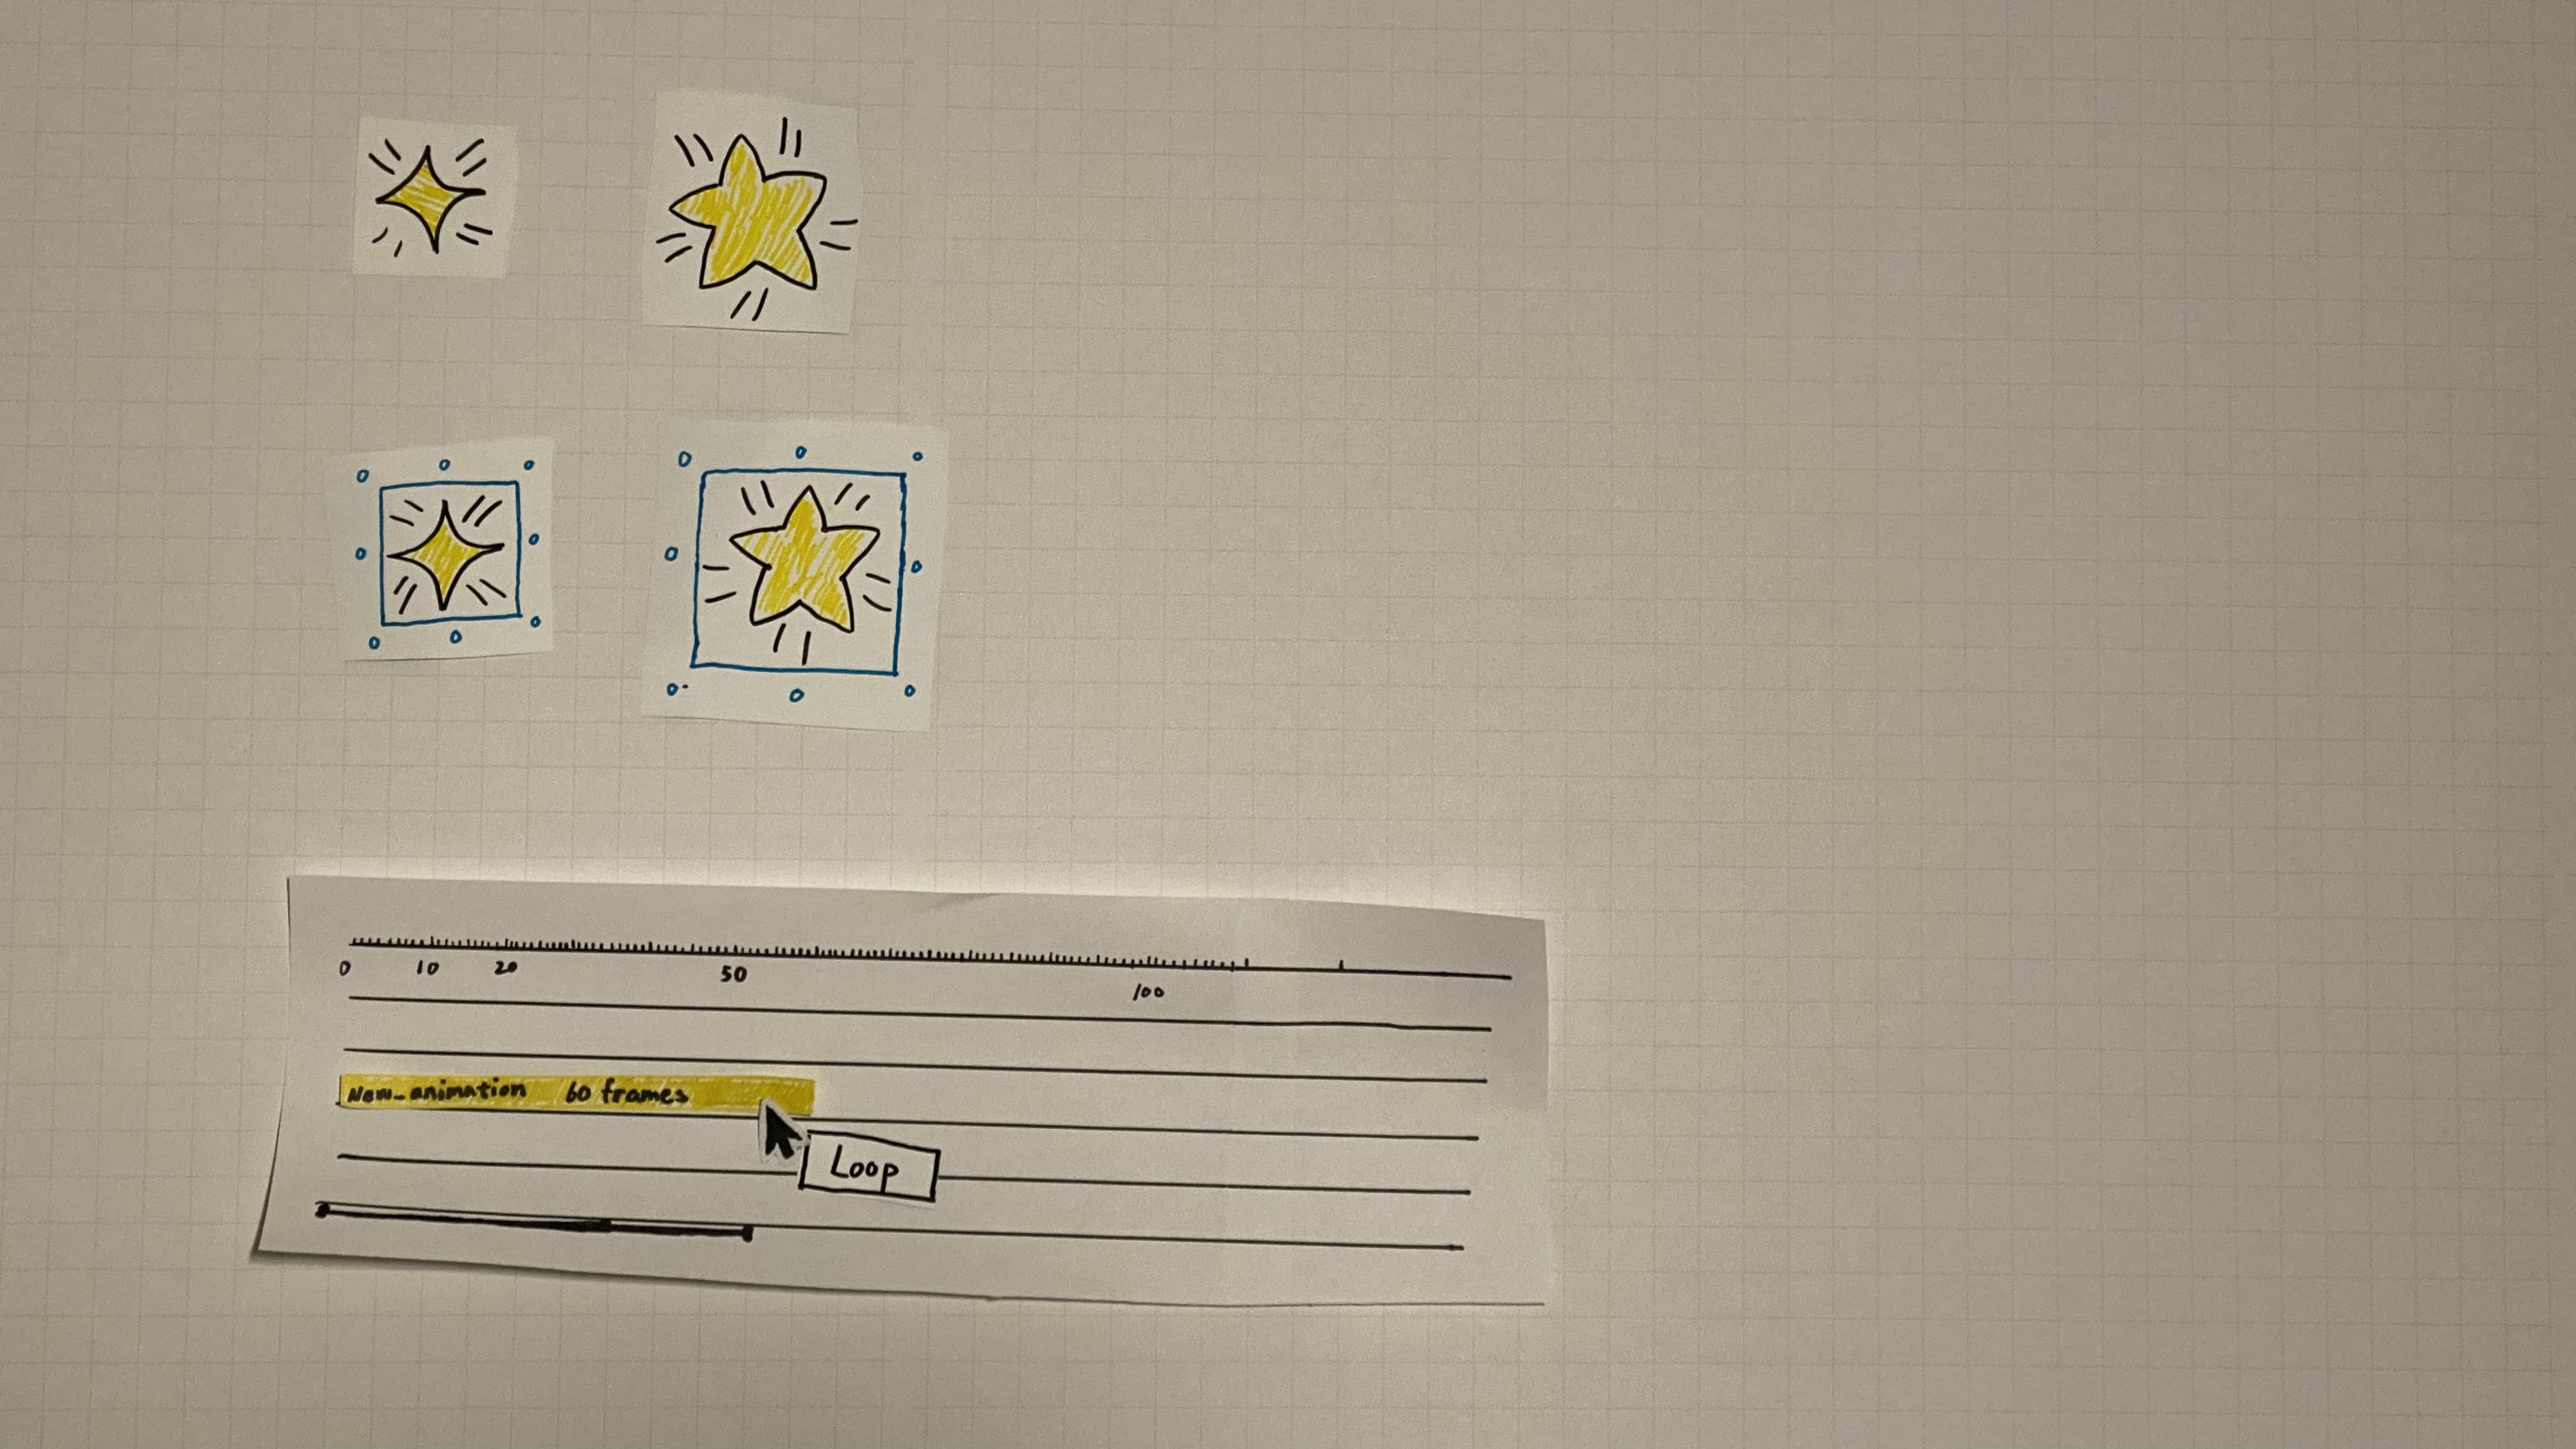 0 10 20 50 100
New_animation 60 frames
Loop